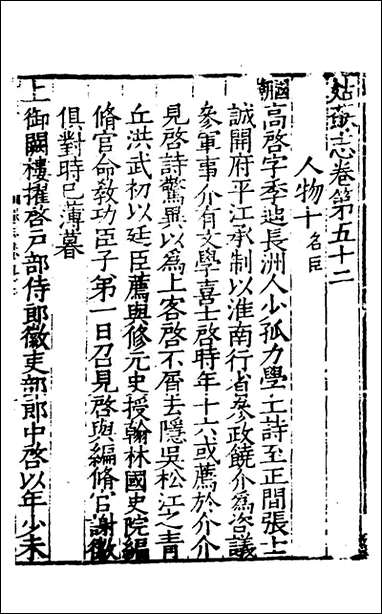 姑蘇志卷第五十二
人物十名臣
國朝高啓字季迪長洲人少孤力學工詩至正間張士
誠開府平江承制以淮南行省叅政饒介為咨議
叅軍事介有文學喜士啓時年十六或薦於介介
見啓詩驚異以為上客啓不屑去隱吳松江之青
丘洪武初以廷臣薦與修元史授翰林國史院編
脩官命敎功臣子弟一日召見啓與編脩官謝徽
俱對時已薄暮
上御闕樓擢啓戸部侍郎徽吏部郎中啓以年少未